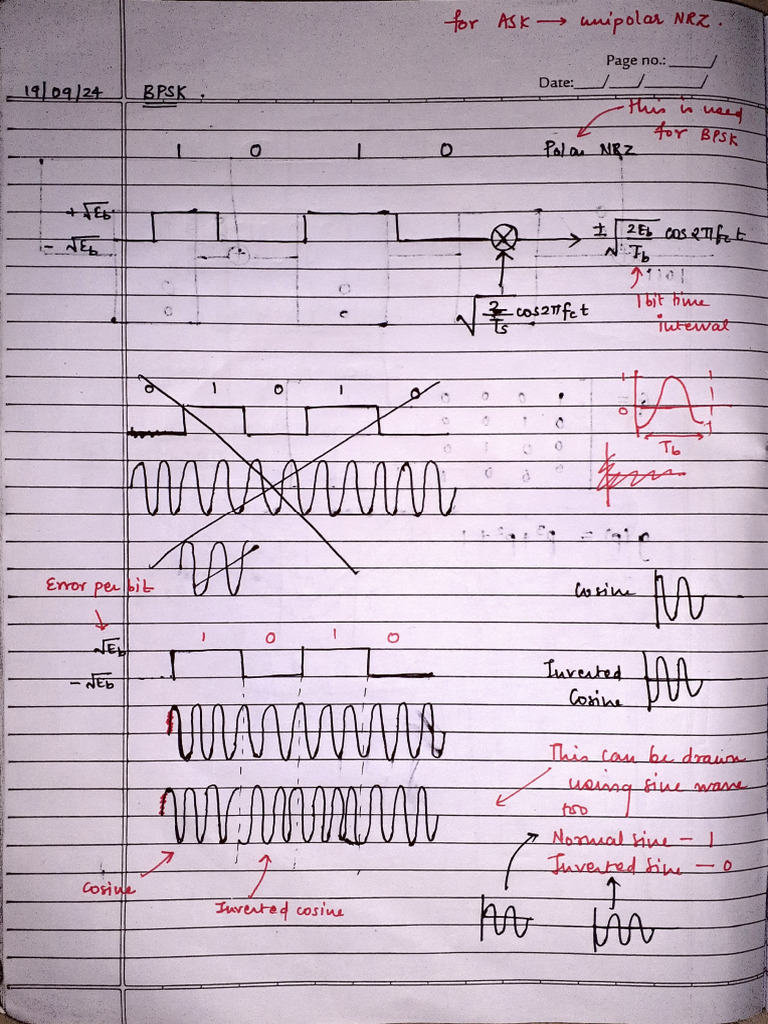 for ASK → unipolar NRZ.
Page no.: ____/
Date:___/___/____/
19/09/24 BPSK.
this is used
for BPSK
1 0 1 0 Polar NRZ
+√Eb
-√Eb
± √(2Eb/Tb) cos2πfct
√(2/Ts) cos2πfct
1 bit time
interval
0 1 0 1 0
1
0
-1
Tb
Error per bit
Cosine
√Eb 1 0 1 0
-√Eb
Inverted
Cosine
This can be drawn
using sine wave
too
Normal sine - 1
Inverted Sine - 0
Cosine
Inverted cosine